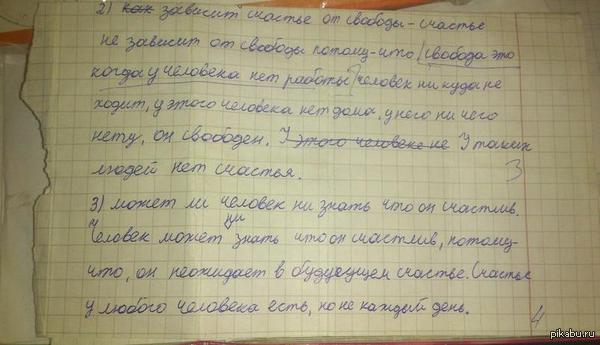 2) как зависит счастье от свободы - счастье
не зависит от свободы потому-что свобода это
когда у человека нет работы, человек ни куда не
ходит, у этого человека нет дома, у него ни чего
нету, он свободен. У этого человека не У таких
людей нет счастья.
3
3) может ли человек ни знать что он счастлив.
ни
Человек может знать что он счастлив, потому-
что, он неожидает в будуещем счастье. Счастье
у любого человека есть, но не каждый день.
4
pikabu.ru